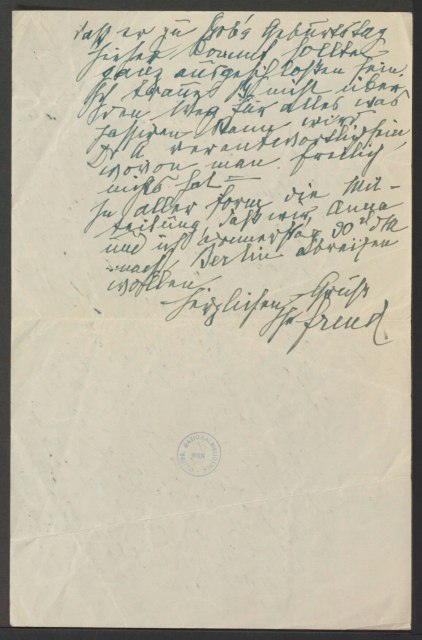 daß er zu Bob's Geburtstag
hieher kommt sollte
ganz ausgeschloßen sein.
Ich traue nicht über
den Weg. Für alles was
passiren kann wird
Dr A. verantwortlich sein,
wovon man freilich
nichts hat –
In aller Form die Mit-
teilung, daß wir, Anna
und ich Donnerstag 30
nach Berlin abreisen
wollen
Herzlichen Gruß
Ihr Freud
NATIONALBIBLIOTHEK
WIEN